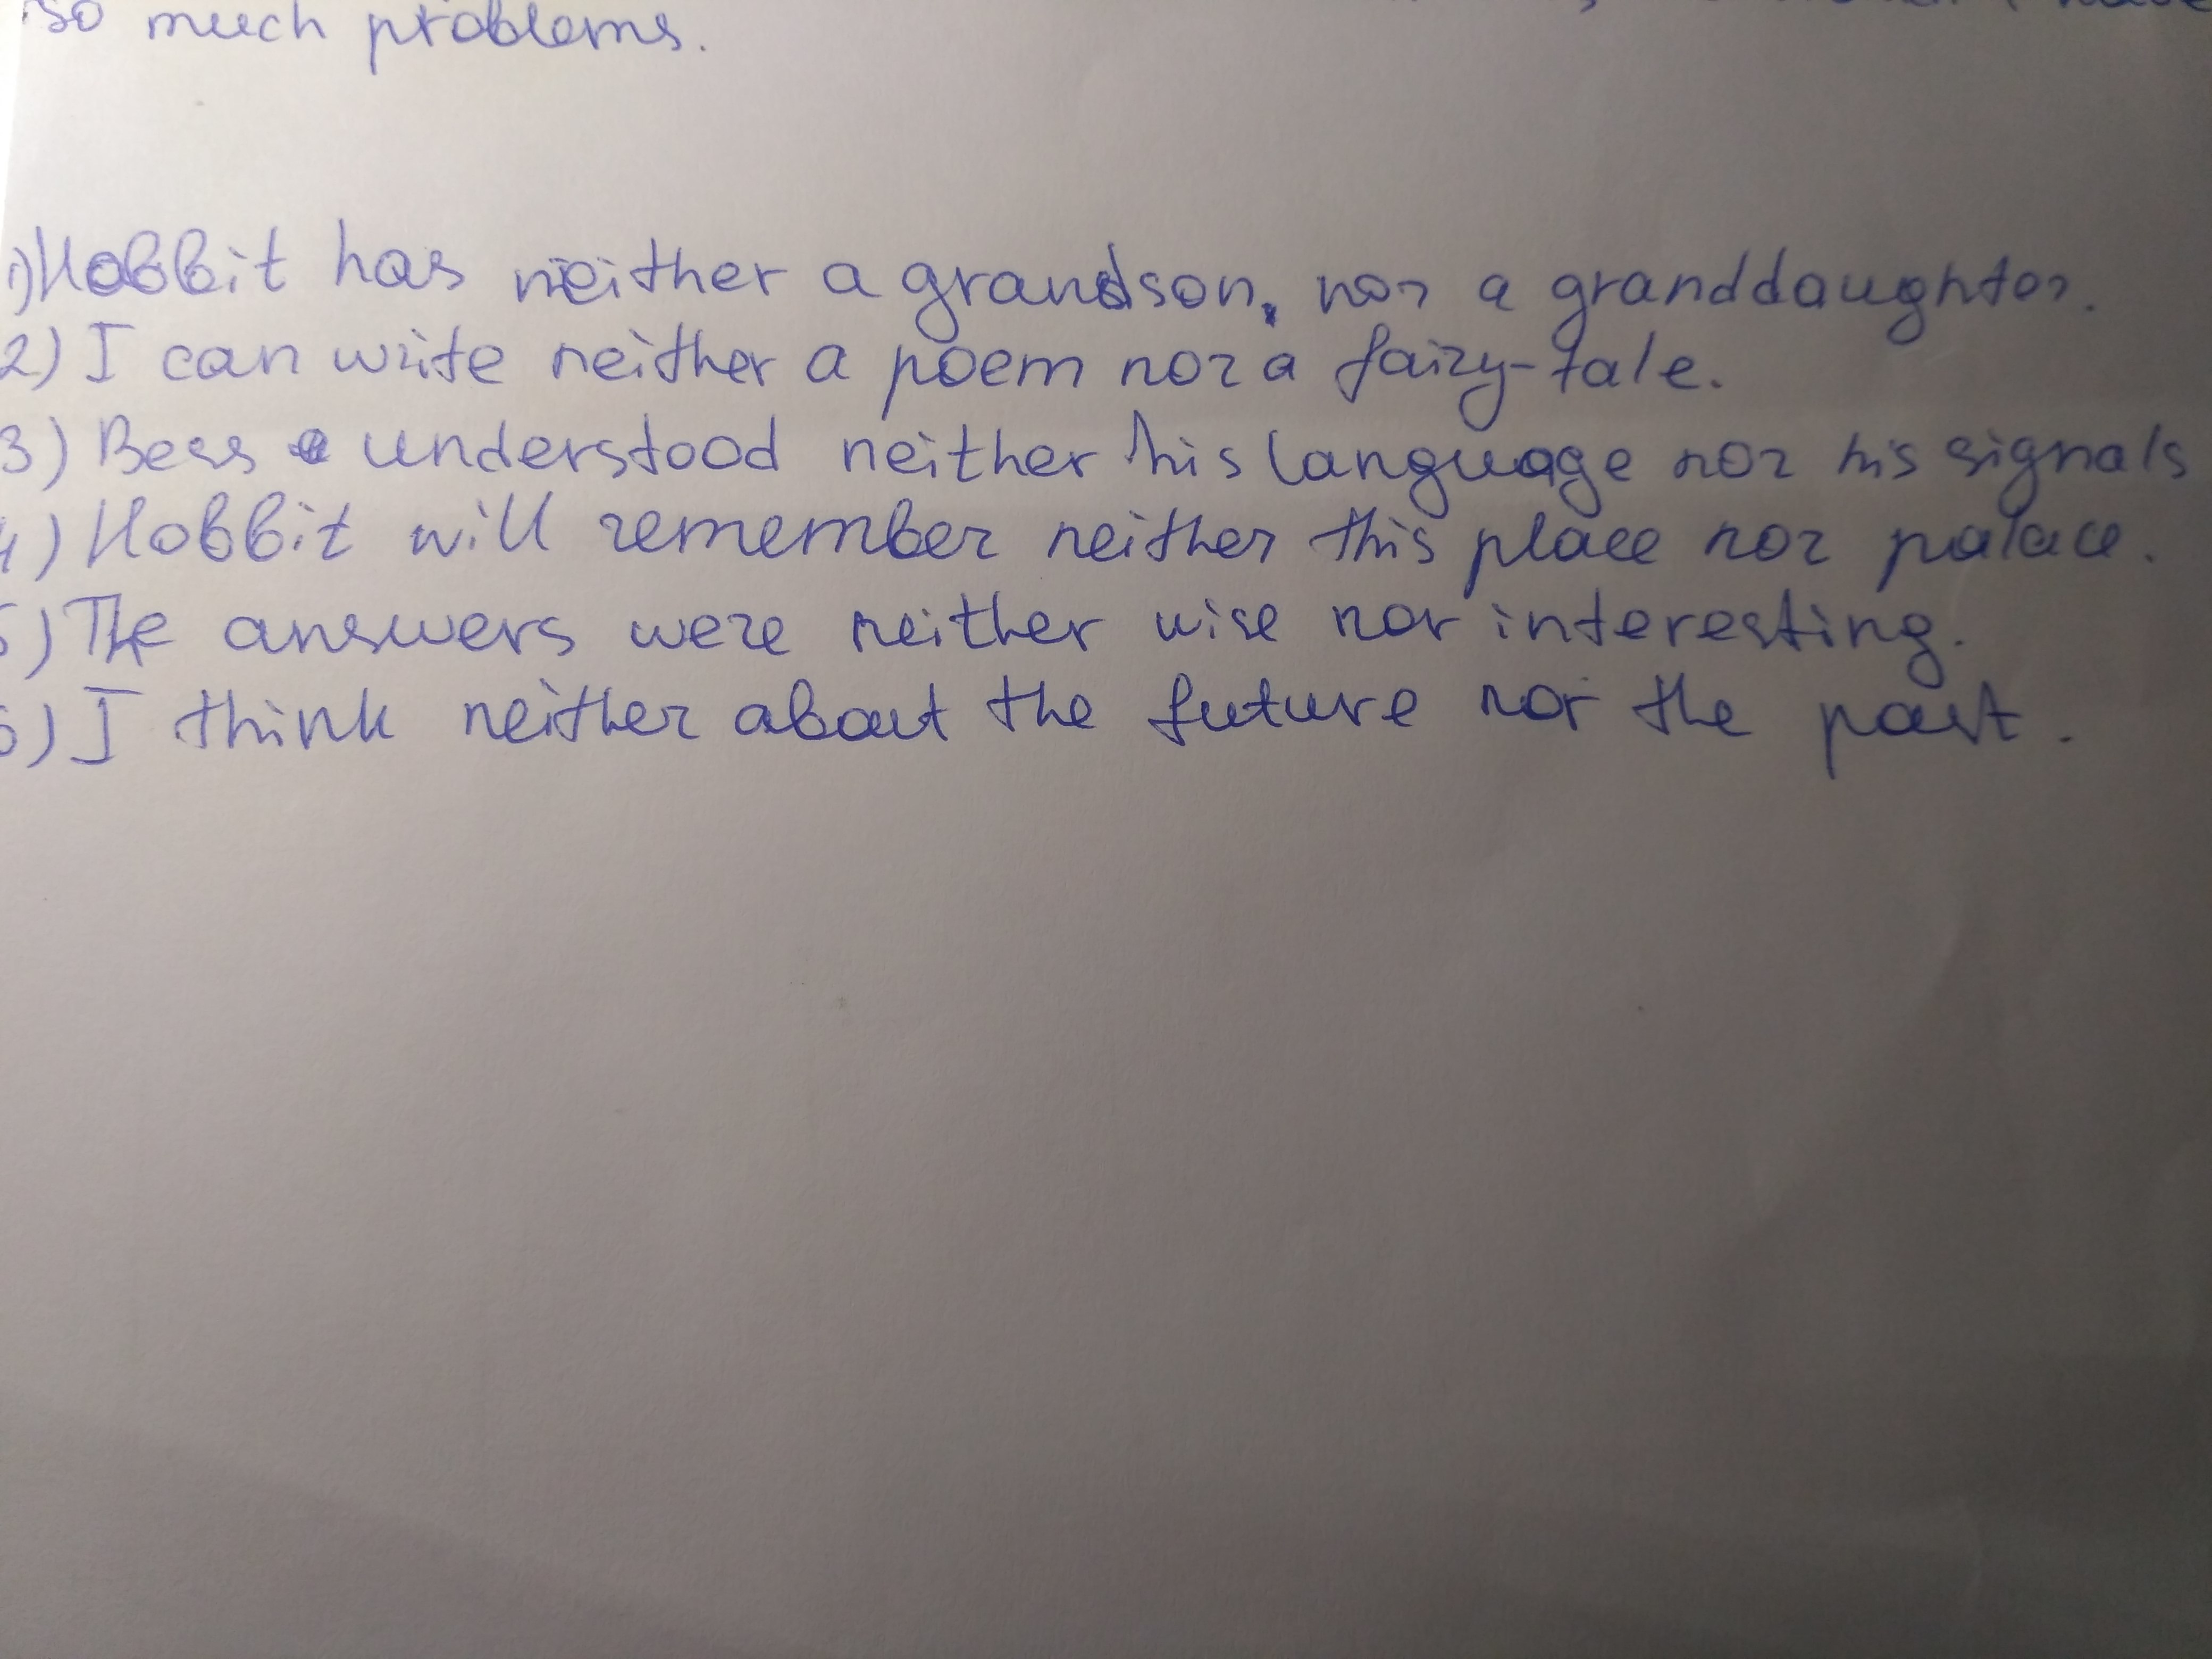 so much problems.
1) Hobbit has neither a grandson, nor a granddaughter.
2) I can write neither a poem nor a fairy-tale.
3) Bess understood neither his language nor his signals
4) Hobbit will remember neither this place nor palace.
5) The answers were neither wise nor interesting.
6) I think neither about the future nor the past.